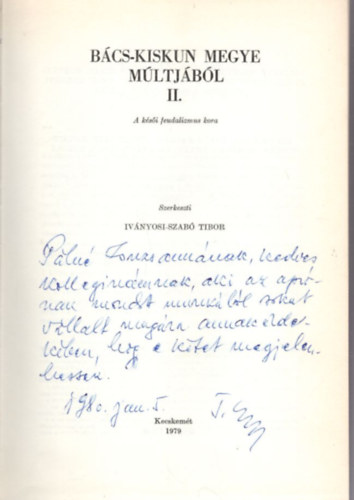 BÁCS-KISKUN MEGYE
MÚLTJÁBÓL
II.
A késői feudalizmus kora
Szerkeszti
IVÁNYOSI-SZABÓ TIBOR
Pálné Zsuzsannának, kedves
kolleginámnak, aki az apró-
nak mondt munkából sokat
vállalt magára annak érde-
kében, hog e kötet megjelen-
hessen.
1980. jan. 5.
Kecskemét
1979